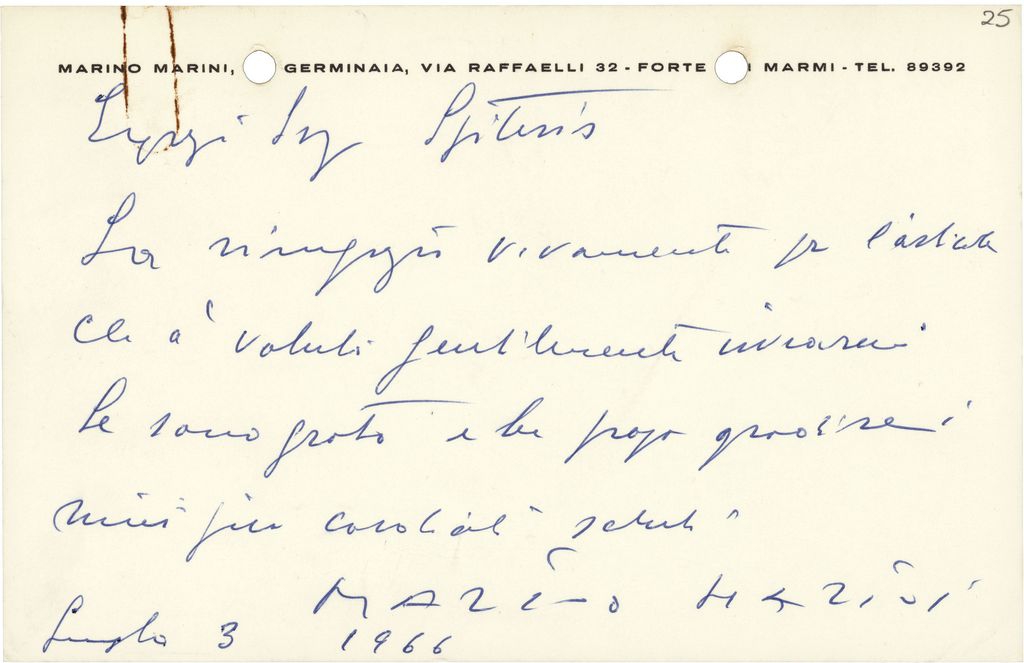 25
MARINO MARINI, GERMINAIA, VIA RAFFAELLI 32 - FORTE I MARMI - TEL. 89392
Sig Spiteris
La ringrazio vivamente per l'articolo
che à voluto gentilmente inviarmi
Le sono grato e la prego gradire i
miei più cordiali saluti
MARINO MARINI
3 1966